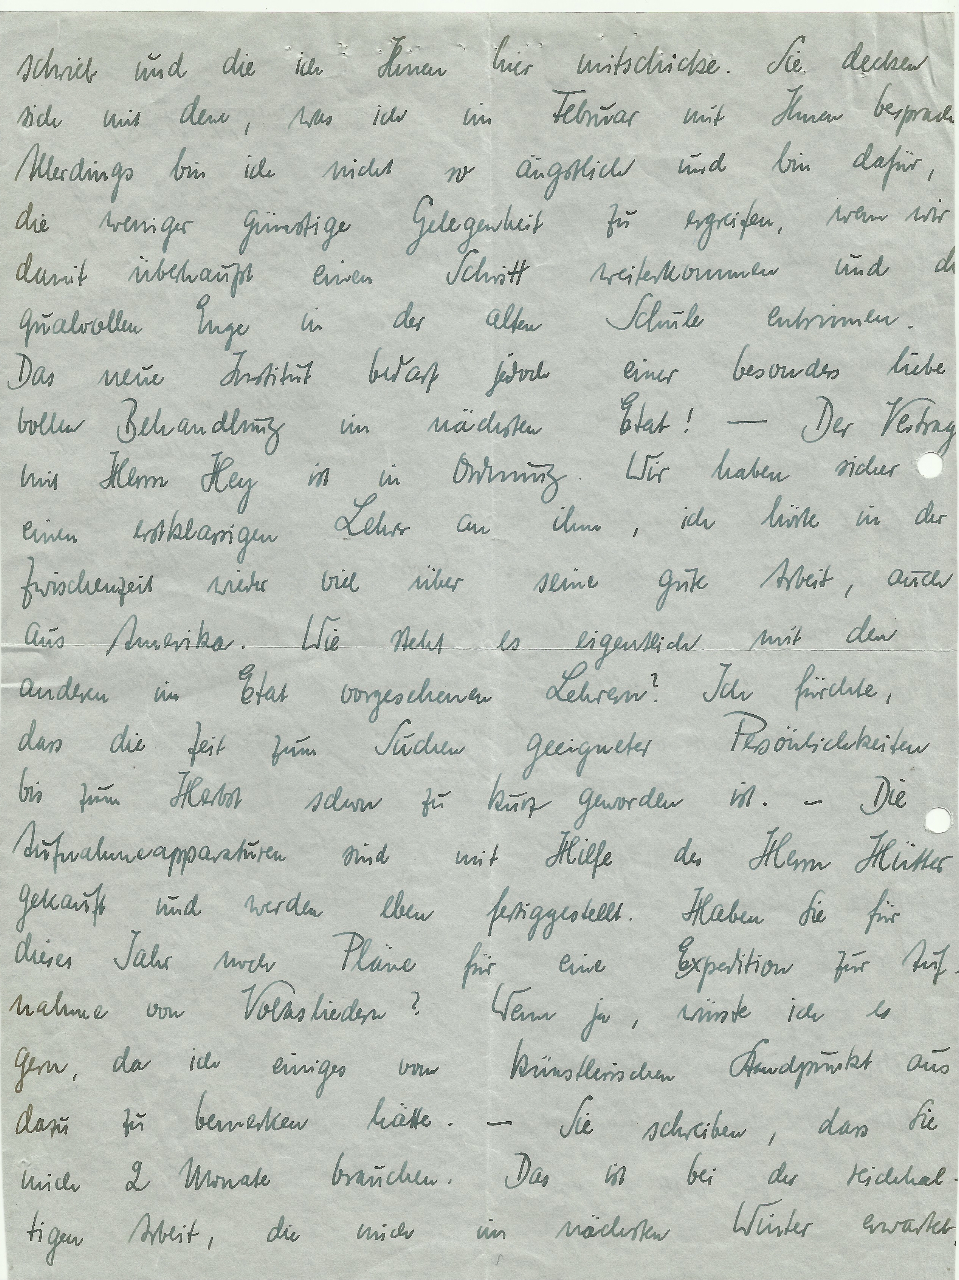 schrieb und die ich Ihnen hier mitschicke. Sie decken
sich mit dem, was ich im Februar mit Ihnen besprach
Allerdings bin ich nicht so ängstlich und bin dafür,
die weniger günstige Gelegenheit zu ergreifen, wenn wir
damit überhaupt einen Schritt weiterkommen und d
qualvollen Enge in der alten Schule entrinnen.
Das neue Institut bedarf jedoch einer besonders liebe
vollen Behandlung im nächsten Etat! — Der Vertrag
mit Herrn Hey ist in Ordnung. Wir haben sicher
einen erstklassigen Lehrer an ihm, ich hörte in der
Zwischenzeit wieder viel über seine gute Arbeit, auch
aus Amerika. Wie steht es eigentlich mit den
anderen im Etat vorgesehenen Lehrern? Ich fürchte,
dass die Zeit zum Suchen geeigneter Persönlichkeiten
bis zum Herbst schon zu kurz geworden ist. – Die
Aufnahmeapparaturen sind mit Hilfe des Herrn Hütter
gekauft und werden eben fertiggestellt. Haben Sie für
dieses Jahr noch Pläne für eine Expedition zur Auf-
nahme von Volksliedern? Wenn ja, wüsste ich es
gern, da ich einiges vom künstlerischen Standpunkt aus
dazu zu bemerken hätte. — Sie schreiben, dass Sie
mich 2 Monate brauchen. Das ist bei der reichhal-
tigen Arbeit, die mich im nächsten Winter erwartet,